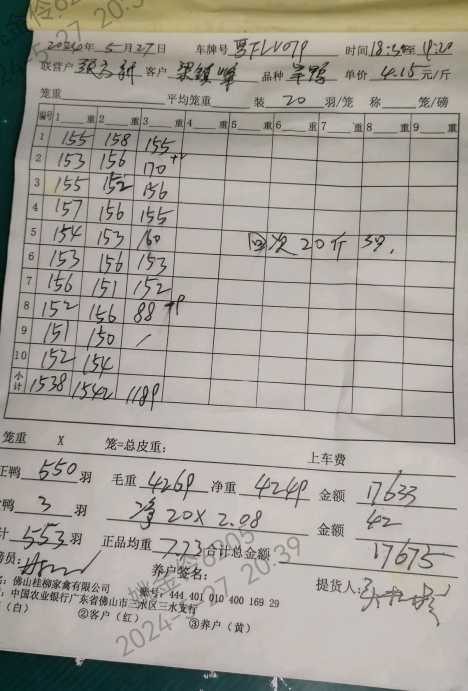 2024年 5月27日 车牌号 粤FLV079 时间18:30至19:20
联营户 客户 品种 单价 4.15元/斤
笼重 平均笼重 装 20 羽/笼 称 笼/磅
编号 1 重 2 重 3 重 4 重 5 重 6 重 7 重 8 重 9 重
1 155 158 155
2 153 156 170
3 155 152 156
4 157 156 155
5 154 153 160 次 20斤
6 153 156 153
7 156 151 152
8 152 156 88
9 151 150 /
10 152 154
小计 1538 1542 1189
笼重 X 笼=总皮重: 上车费
正鸭 550 羽 毛重 4269 净重 4249 金额 17633
鸭 3 羽 净 20X2.08 金额 42
计 553羽 正品均重 7.73 合计总金额 17675
务员: 养户签名: 提货人:
名: 佛山桂柳家禽有限公司 账号: 444 401 010 400 169 29
: 中国农业银行广东省佛山市三水区三水支行
(白) ②客户(红) ③养户(黄)
2024-5-27 20:39